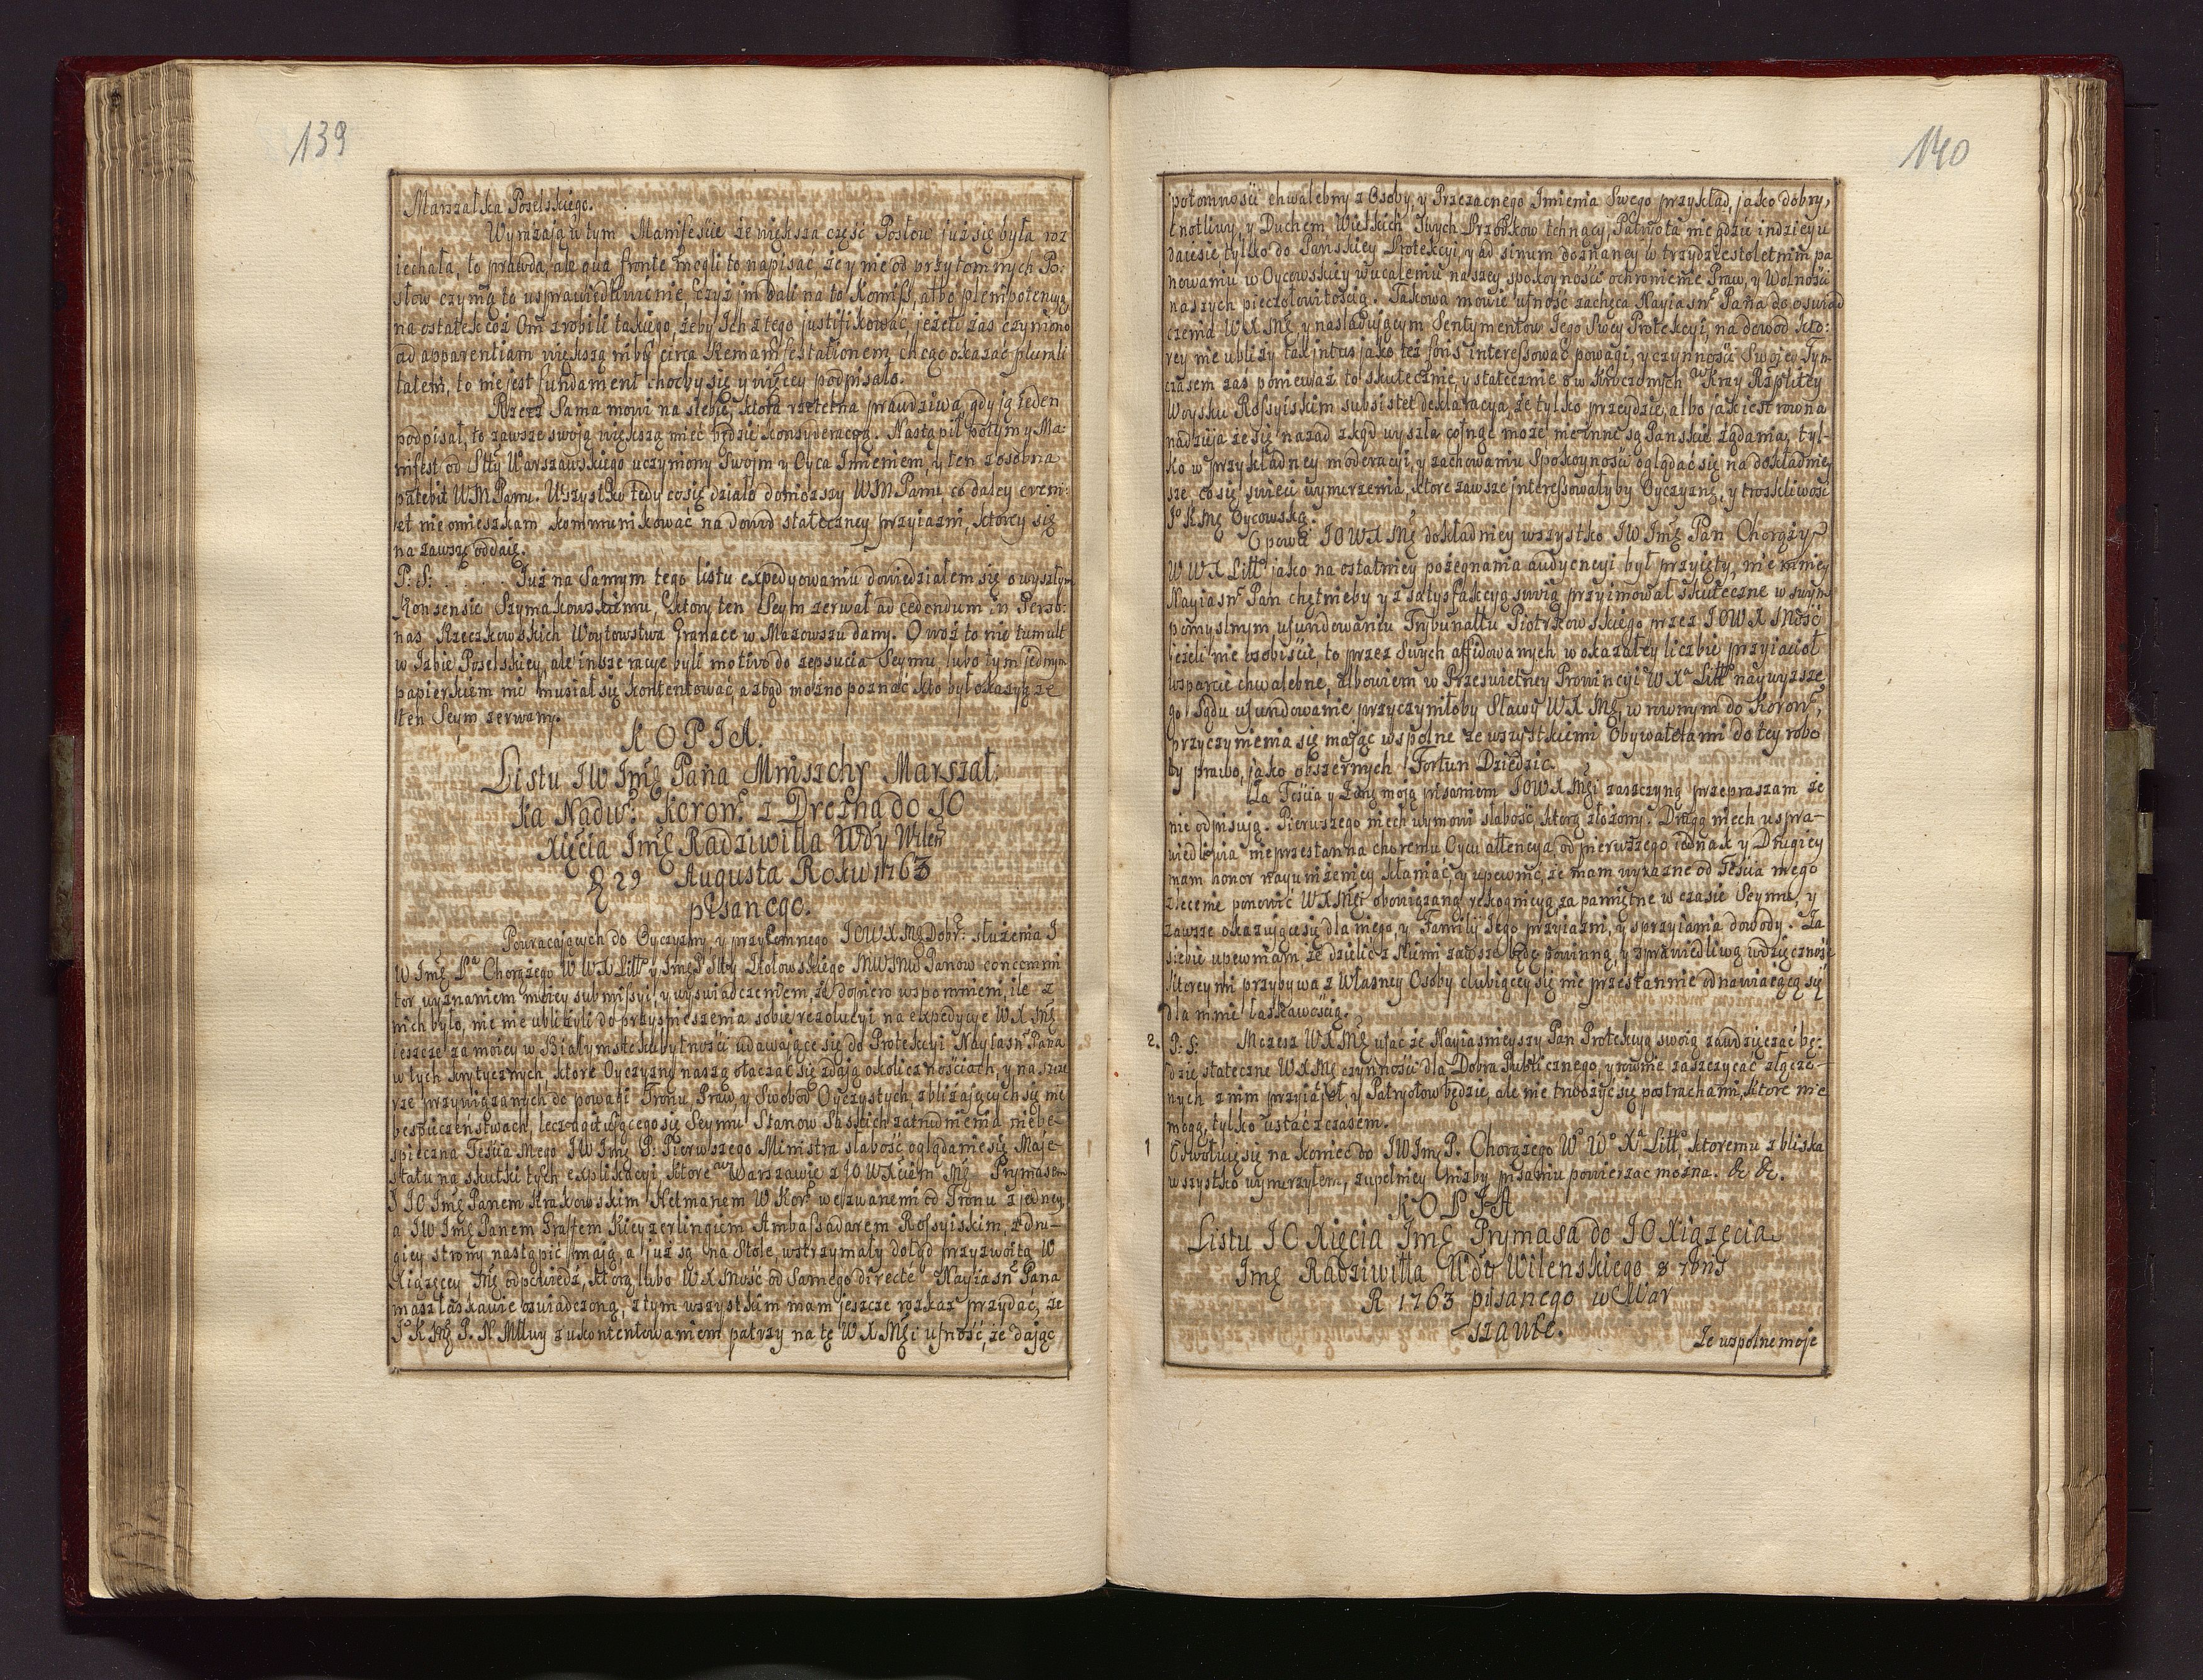 139
Marszałka Poselskiego.
Wyrażają w tym Manifescie że większa część Posłow już się była roz
iechała, to prawda, ale qua fronte mogli to napisać że y nie od przytomnych Po:
słow czynią to usprawiedliwienie, czyż jm dali na to Komiss, albo plenipotencyą,
na ostatek coż Oni zrobili takiego, żeby Ich z tego justifikować, jeżeli zas czyniono
ad apparentiam większą niby circa Remanifestationem, chcąc okazać plurali
tatem, to nie jest fundament choćby się y więcey podpisało.
Rzecz Sama mowi na siebie, ktora rzetelna prawdziwa, gdy ją Ieden
podpisał, to zawsze swoją większą mieć będzie konsyderacyą. Nastąpił potym y Ma:
nifest od Stty Warszawskiego uczyniony Swojm y Oyca Imieniem, y ten zosobna
WM Panu. Wszystko tedy co się działo doniozszy WM Panu co daley eveni:
et nie omieszkam kommunikować na dowod stateczney przyiazni, ktorey się
na zawsze oddaię.
P: S: . . . . . Już na Samym tego listu expedyowaniu dowiedziałem się o wyszłym
Konsensie Szymakowskiemu, ktory ten Seym zerwał ad cedendum in Perso:
nas Rzeczkowskich Woytowstwa Granace w Mazowszu dany. Owoż to nie tumult
w Izbie Poselskiey, ale insze racye byli motivo do zepsucia Seymu, lubo tym jednym
papierkiem nie musiał się kontentować, a ztąd można poznać kto był okazyą że
ten Seym zerwany.
KOPIA.
Listu JW Jmę Pana Mniszchy Marszał:
ka Nadwr: Koronr: z Drezna do JO
Xięcia Jmę Radziwiłła Wdy Wileń
D 29 Augusta Roku 1763
pisanego.
Powracających do Oyczyzny, y przyiemnego JOWX Mę Dobr: służenia J
W Jmę Pa Chorążego W WX Litto y Jmę P Stty MWMw Panow concommi
tor, wyznaniem moiey submissyi, y wyswiadczeniem, że dopiero wspomnieni, ile z
nich było, nic nie ubliżyli do przyspieszenia sobie rezolucyi na expedycye WX Mę
ieszcze za moiey w Białymstoku bytnosci udawaiące się do Protekcyi Nayiasnr Pana
w tych krytycznych, ktore Oyczyznę naszą otaczać się zdają okolicznosciach, y na szcze
rze przywiązanych do powagi Tronu, Praw, y Swobod Oyczystych, zbliżających się nie
bespieczenstwach, lecz agituiącego się Seymu Stanow Saskich zatrudnienia niebe-
spieczna Tescia Mego JW Jmę P: Pierwszego Ministra słabość, oglądanie się Maje-
statu na skutki tych explikacyi, ktore w Warszawie z JO WXciem Mę Prymasem
J JO Jmę Panem Krakowskim Hetmanem W Kor: wezwanemi od Tronu z jedney,
a JW Jmę Panem Graffem Kieyzerlingiem Ambassadarem Rossyiskim, z dru-
giey strony nastąpić mają, a już są na Stole, wstrzymały dotąd przyzwoitą W
Xiążęcey Mę odpowiedź, ktorą lubo WX Mość od Samego directé Nayiasnr Pana
masz łaskawie oswiadczoną, z tym wszystkim mam jeszcze rozkaz przydać, że
Jo K Mę P. N Mtwy z ukontentowaniem patrzy na tę WX Męi ufność, że dając
140
potomności chwalebny z Osoby, y Przezacnego Imienia Swego przykład, jako dobry,
cnotliwy, y Duchem Wielkich Swych Przodkow tchnący Patryota nie gdzie indziey u
daiesie tylko do Panskiey Protekcyi, y ad sinum doznaney w trzydziestoletnim pa
nowaniu w Oycowskiey w całemu naszey spokoynosci ochronienie Praw, y Wolności
naszych pieczołowitością. Takowa mowie ufność zachęca Nayiasnr Pana do oswiad
czenia WX Mę, y nasladującym Sentymentow Jego Swey Protekcyi, na dowod kto:
rey nie ubliży tak intus jako też foris interessować powagi, y czynności Swojey. Tym
czasem zas ponieważ to skutecznie, y statecznie o w Kroczonych w Kray Rzplitey
Woysku Rossyiskim subsistet deklaracya, że tylko przeydzie, albo jak iest rowna
nadzieja że się nazad zkąd wyszła cofnąc może, nie inne są Panskie żądania, tyl-
ko w przykładney moderacyi, y zachowaniu Spokoynosci oglądać się na dokładniey
sze, co się swieci wymierzenia, ktore zawsze interessowałyby Oyczyznę, y troskliwosc
Jo K Mę Oycowską.
Opowie JOWX Mę dokładniey wszystko JW Jmę Pan Chorąży
W WX Litto jako na ostatniey pożegnania audyencyi był przyięty, nie mniey
Nayiasnr Pan chętnieby y z satysfakcyą swoią przyimował skuteczne w swym
pomyslnym ufundowaniu Trybunału Piotrkowskiego przez JOWX Mość
jeżeli nie osobiscie, to przez Swych affidowanych w okazałey liczbie przyiacioł
wsparcie chwalebne, albowiem w Przeswietney Prowincyi WXa Litto naywyższe
go Sądu ufundowanie przyczyniłoby Sławy WX Mę, w rownym do Koronr,
przyczynienia się mając wspolne ze wszystkiemi Obywatelami do tey robo
ty prawo, jako obszernych Fortun Dziedzic.
Za Tescia y Zonę moją pisaniem JOWX Męi zaszczyną przepraszam że
nie odpisują. Pierwszego niech wymowi słabość, ktorą złożony. Drugą niech uspra-
wiedliwia nieprzestanna choremu Oycu attencya, od pierwszego iednak y Drugiey
mam honor nayuniżeniey kłaniać, y upewnić, że mam wyrazne od Tescia mego
zlecenie ponowić WX Męi obowiązaną rekognicyą za pamiętne w czasie Seymu, y
zawsze okazujące się dla niego, y Familij Jego przyiazni, y sprzyiania dowody. Za
siebie upewniam, że dzielic z Niemi zawsze będę powinną, y sprawiedliwą wdzięczność
ktorey mi przybywa z Własney Osoby chlubiącey się nie przestannie odnawiaiącą się
dla mnie łaskawością.
2. P: S: Możesz WX Mę ufać że Nayiasnieyszy Pan Protekcyą swoią zawdzięczać bę:
dzie stateczne WX Mę czynności dla Dobra Publicznego, y rownie zaszczycać złącze-
nych z nim przyiacioł, y Patryotow będzie, ale nie trwożyć się postrachami, ktore nie
mogą, tylko ustać z czasem.
1 Odwołuię się na koniec do JW Jmę P. Chorążego Wo Wo Xa Litto, ktoremu z bliska
wszystko wymierzyłem, zupełniey niżby pisaniu powierzac można. &c &c.
KOPIA
Listu JO Xięcia Jmę Prymasa do JO Xiążęcia
Jmę Radziwiłła Wdy Wilenskiego 8 7bris
R 1763 pisanego w War
szawie.
Ze wspolne moje